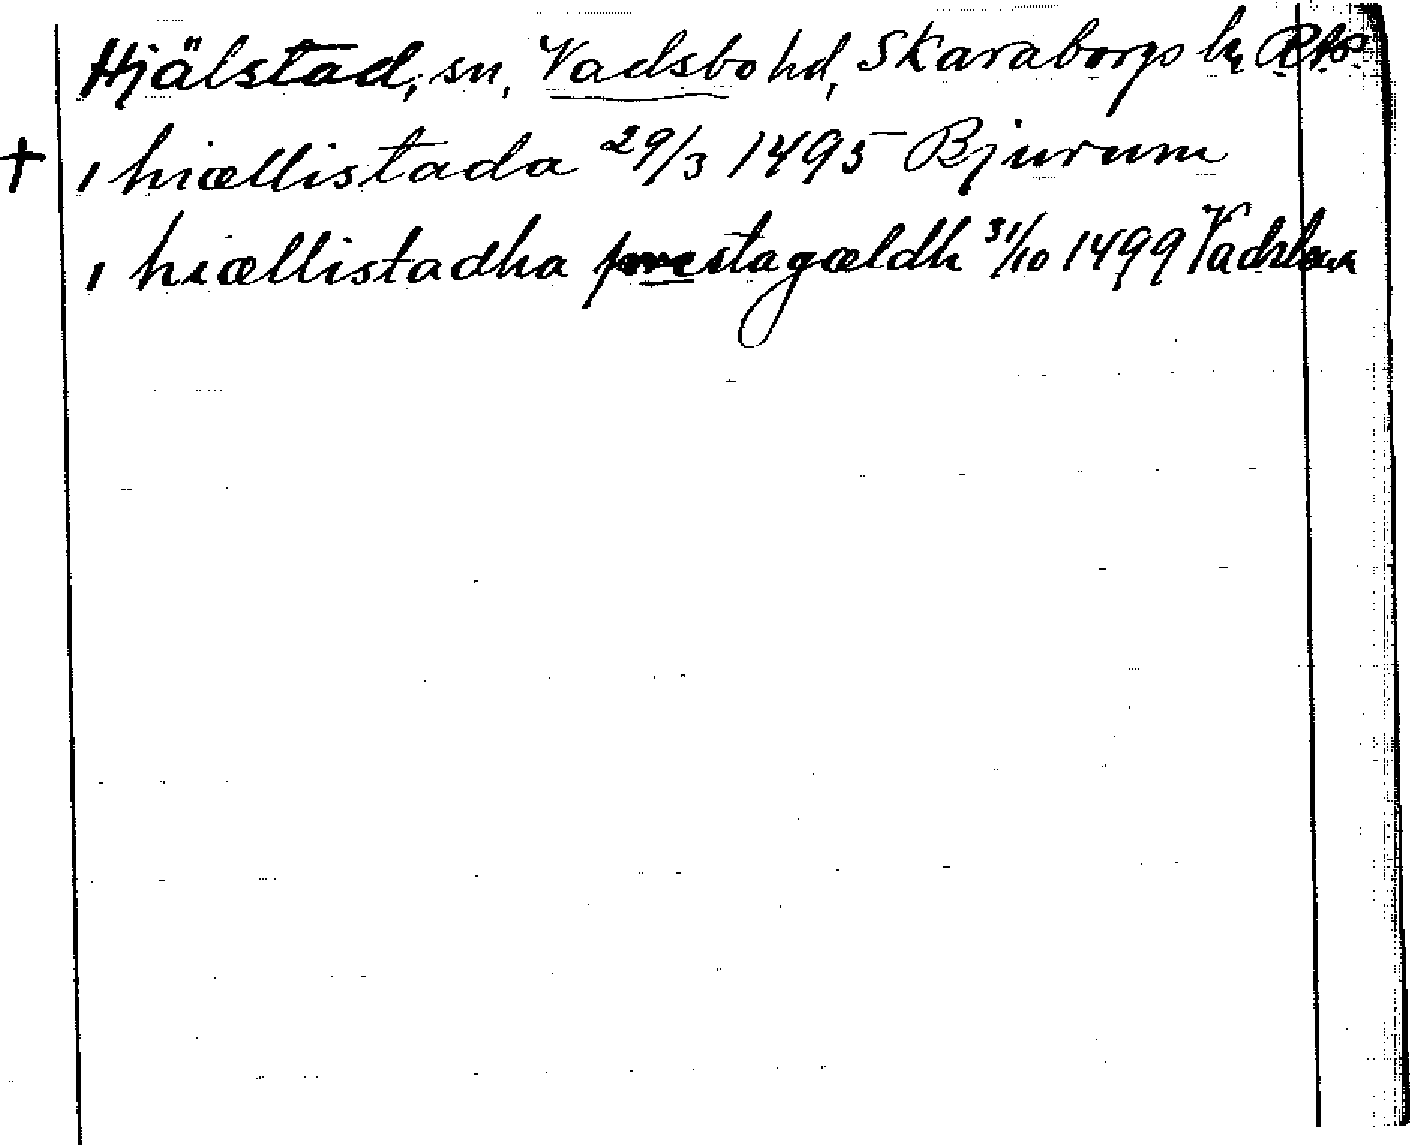 Hjälstad, sn, Vadsbo hd, Skaraborgs l.
+ ı hiællistada 29/3 1495 Bjurum
ı hiællistadha prestagældh 31/10 1499 Vadstena